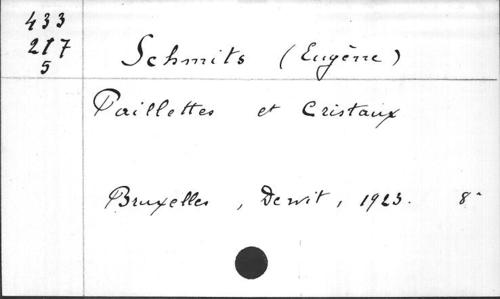 433
217
5
Schmits (Eugène)
Paillettes et Cristaux
Bruxelles, Dewit, 1923. 8°